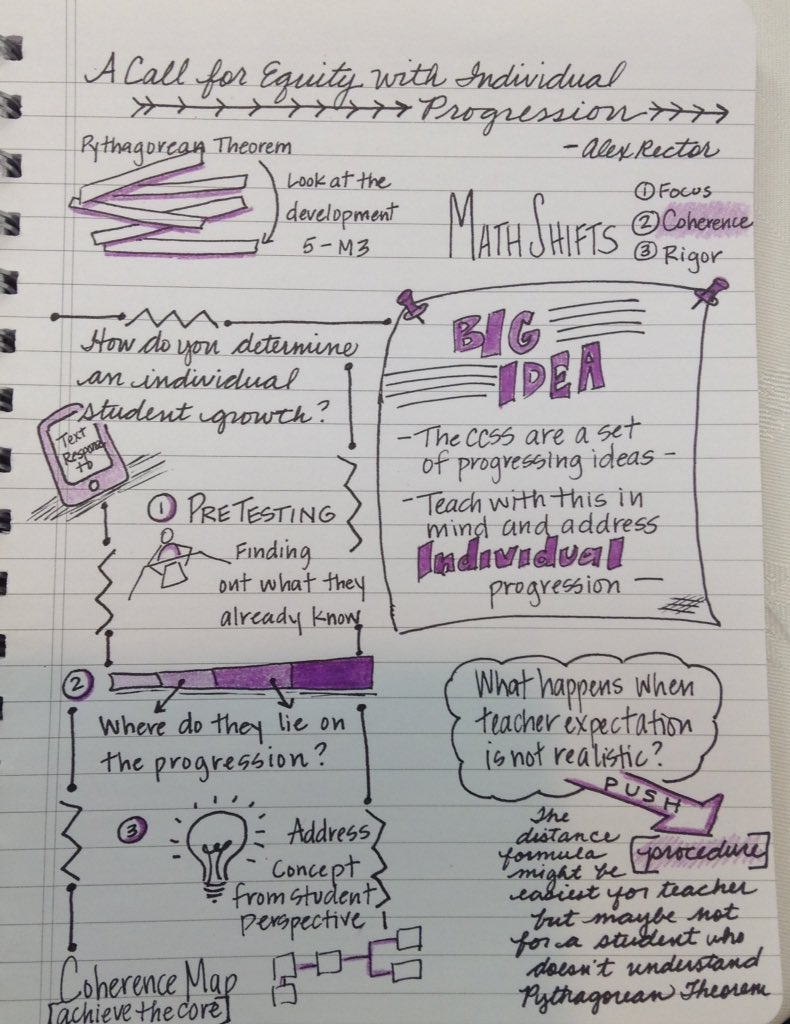 A Call for Equity with Individual
Progression
-Alex Rector
Pythagorean Theorem
Look at the
development
5-M3
MATH SHIFTS
① Focus
② Coherence
③ Rigor
How do you determine
an individual
student growth?
Text
Response
to
① PRETESTING
Finding
out what they
already know
② 
Where do they lie on
the progression?
③ Address
Concept
from student
perspective
Coherence Map
[achieve the core]
BIG
IDEA
- The CCSS are a set
of progressing ideas -
- Teach with this in
mind and address
Individual
progression -
What happens when
teacher expectation
is not realistic?
PUSH
procedure
The
distance
formula
might be
easiest for teacher
but maybe not
for a student who
doesn't understand
Pythagorean Theorem